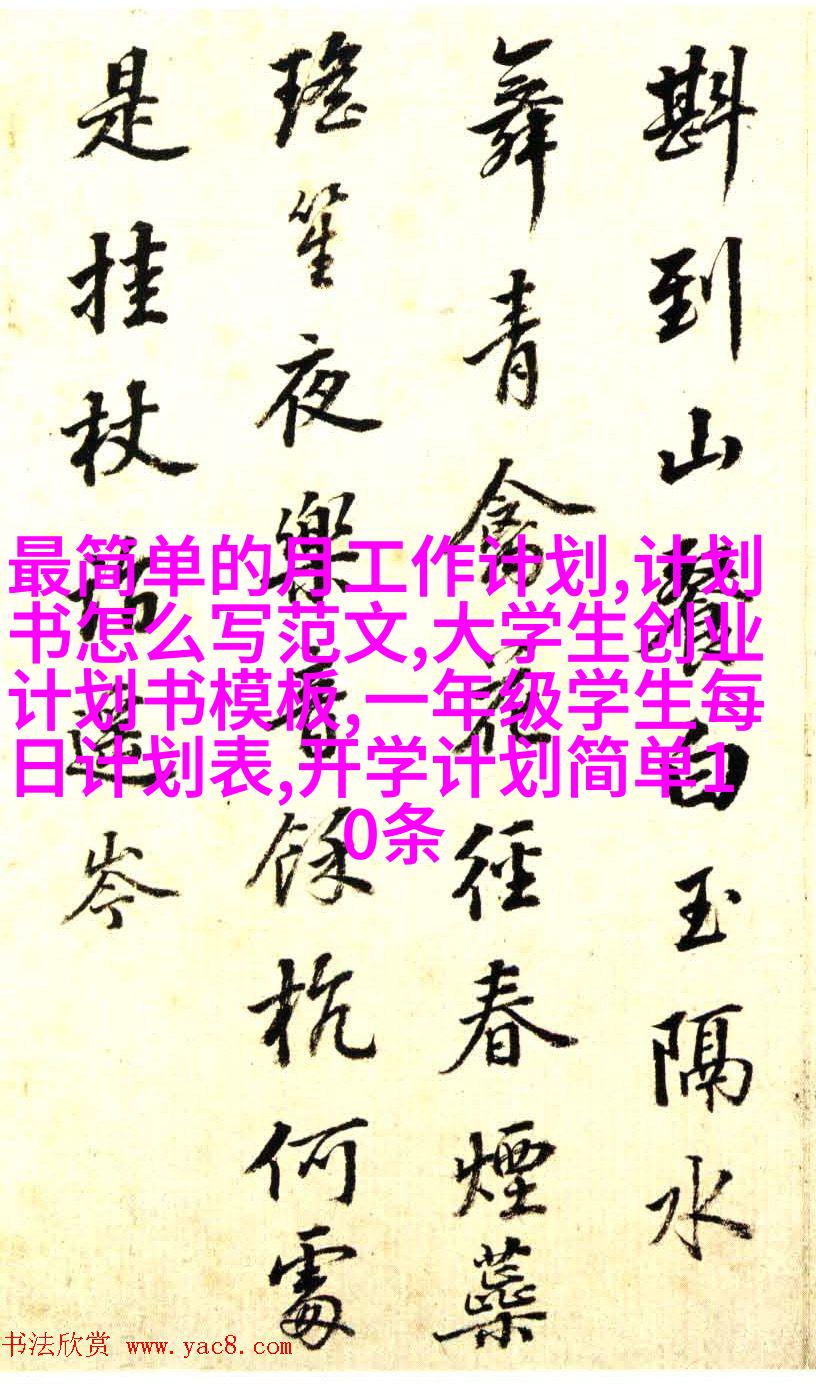 斟到山白玉隔水
舞青禽花徑春煙蘂
瑤笙夜樂餘杭何處
是挂杖岑
最简单的月工作计划,计划
书怎么写范文,大学生创业
计划书模板,一年级学生每
日计划表,开学计划简单1
0条
书法欣赏 www.yac8.com